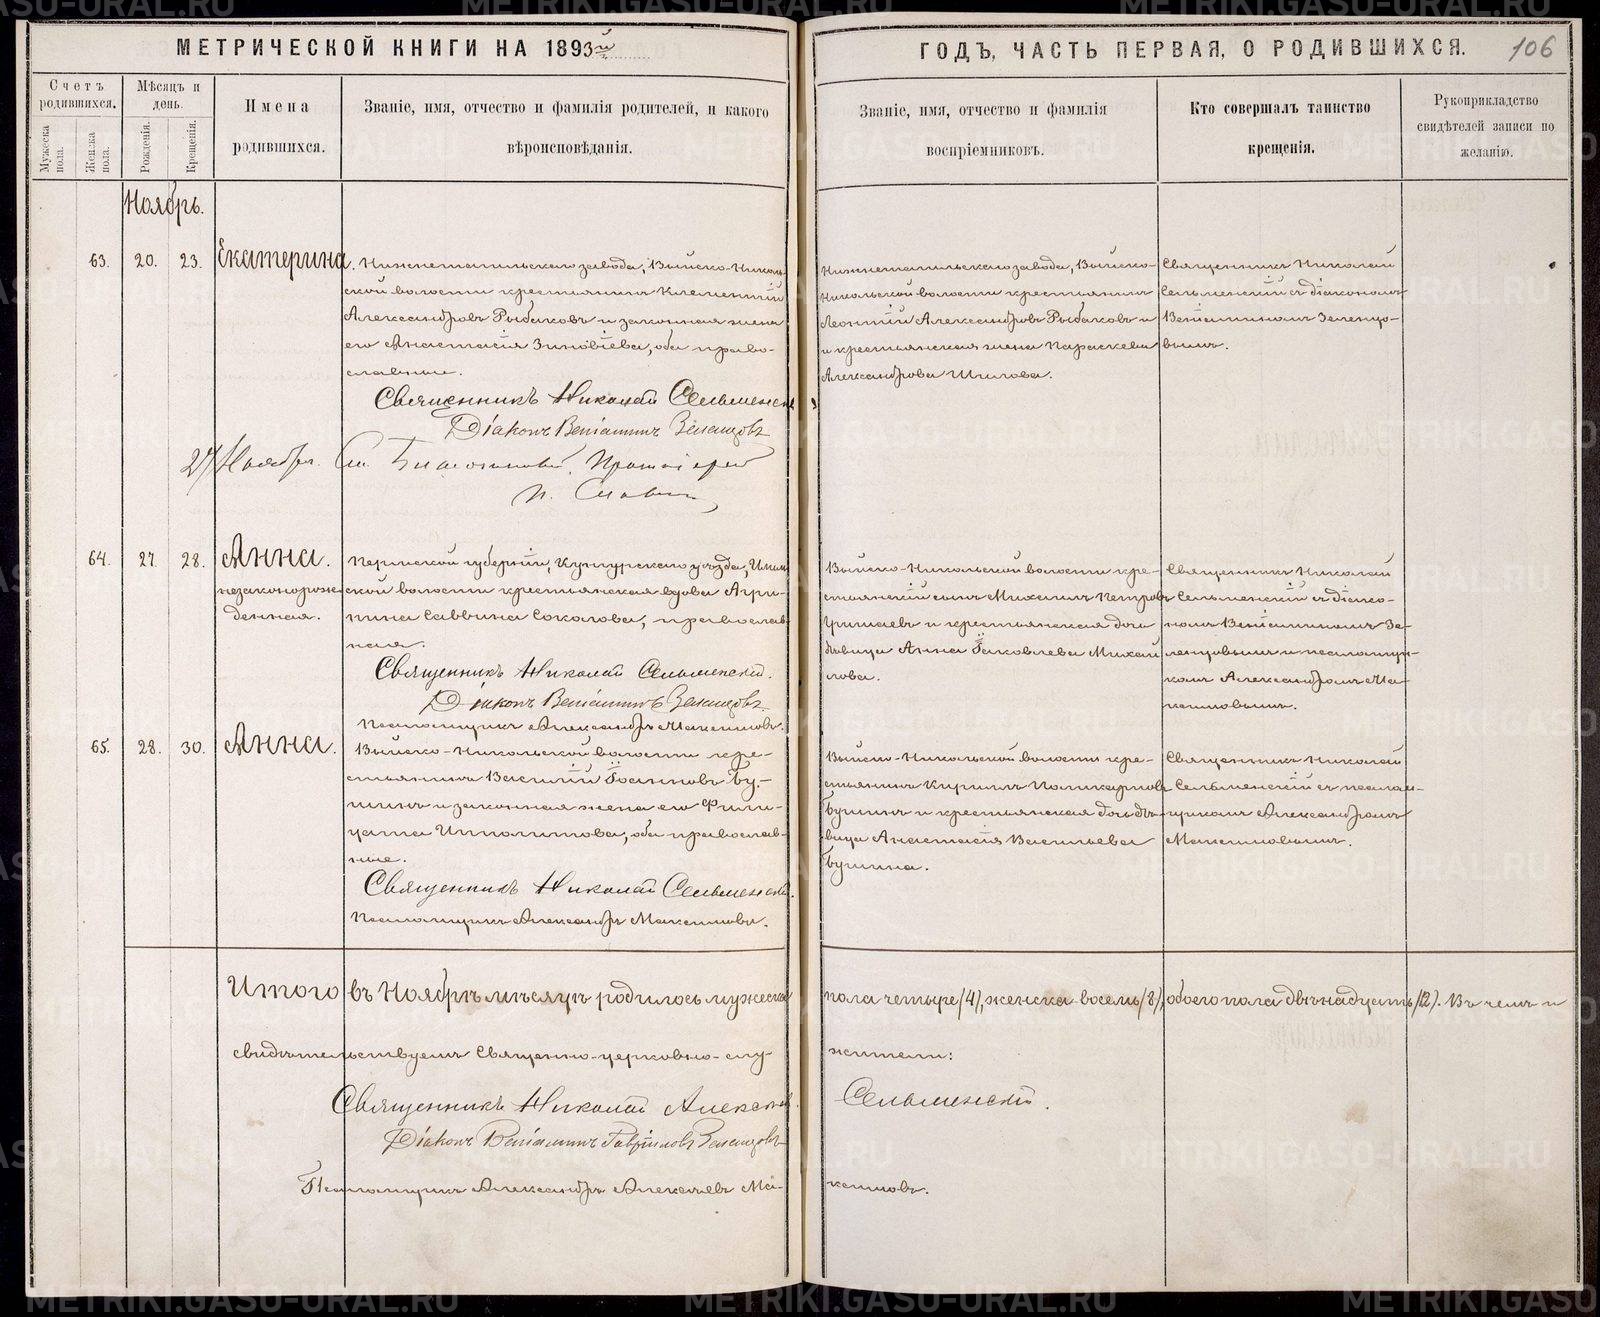 МЕТРИЧЕСКОЙ КНИГИ НА 1893й
Счетъ родившихся.
Мужеска пола.
Женска пола.
Мѣсяцъ и день.
Рожденія.
Крещенія.
Имена родившихся.
Званіе, имя, отчество и фамилія родителей, и какого
вѣроисповѣданія.
ГОДЪ, ЧАСТЬ ПЕРВАЯ, О РОДИВШИХСЯ.
106
Званіе, имя, отчество и фамилія
воспріемниковъ.
Кто совершалъ таинство
крещенія.
Рукоприкладство
свидѣтелей записи по
желанію.
Ноябрь.
63. 20. 23. Екатерина.
Нижнетагильскаго завода, Выйско-Николь-
ской волости крестьянинъ Климентій
Александровъ Рыбаковъ и законная жена
его Анастасія Зиновіева, оба право-
славные.
Священникъ Николай Сельменскій
Діаконъ Веніаминъ Зеленцовъ
Нижнетагильскаго завода, Выйско-
Никольской волости крестьянинъ
Леонтій Александровъ Рыбаковъ и
и крестьянская жена Параскева
Александрова Шилова.
Священникъ Николай
Сельменскій съ діакономъ
Веніаминомъ Зеленцо-
вымъ.
27 Ноября.
Протоіерей
64. 27. 28. Анна.
незаконорож-
денная.
Пермской губерніи, Кунгурскаго уѣзда,
ской волости крестьянская вдова Агри-
пина Саввина Соколова, православ-
ная.
Священникъ Николай Сельменскій.
Діаконъ Веніаминъ Зеленцовъ.
Псаломщикъ Александръ Максимовъ.
Выйско-Никольской волости кре-
стьянскій сынъ Михаилъ Петровъ
и крестьянская дочь
дѣвица Анна Іаковлева Михай
лова.
Священникъ Николай
Сельменскій съ діако-
номъ Веніаминомъ Зе-
ленцовымъ и псаломщи-
комъ Александромъ Ма-
ксимовымъ.
65. 28. 30. Анна.
Выйско-Никольской волости кре-
стьянинъ Василій Іоанновъ Бу-
шинъ и законная жена его Фили-
цата Ипполитова, оба православ-
ные.
Священникъ Николай Сельменскій.
Псаломщикъ Александръ Максимовъ.
Выйско-Никольской волости кре-
стьянинъ Кириллъ Поликарповъ
Бушинъ и крестьянская дочь дѣ-
вица Анастасія Васильева
Бушина.
Священникъ Николай
Сельменскій съ псалом-
щикомъ Александромъ
Максимовымъ.
Итого въ Ноябрѣ мѣсяцѣ родилось мужеска
пола четыре (4), женска восемь (8), обоего пола двѣнадцать (12). Въ чемъ и
свидѣтельствуемъ Священно-церковно-слу-
жители:
Священникъ Николай Алексѣевъ
Сельменскій.
Діаконъ Веніаминъ Гавріиловъ Зеленцовъ
Псаломщикъ Александръ Алексѣевъ Ма-
ксимовъ.
METRIKI.GASO-URAL.RU